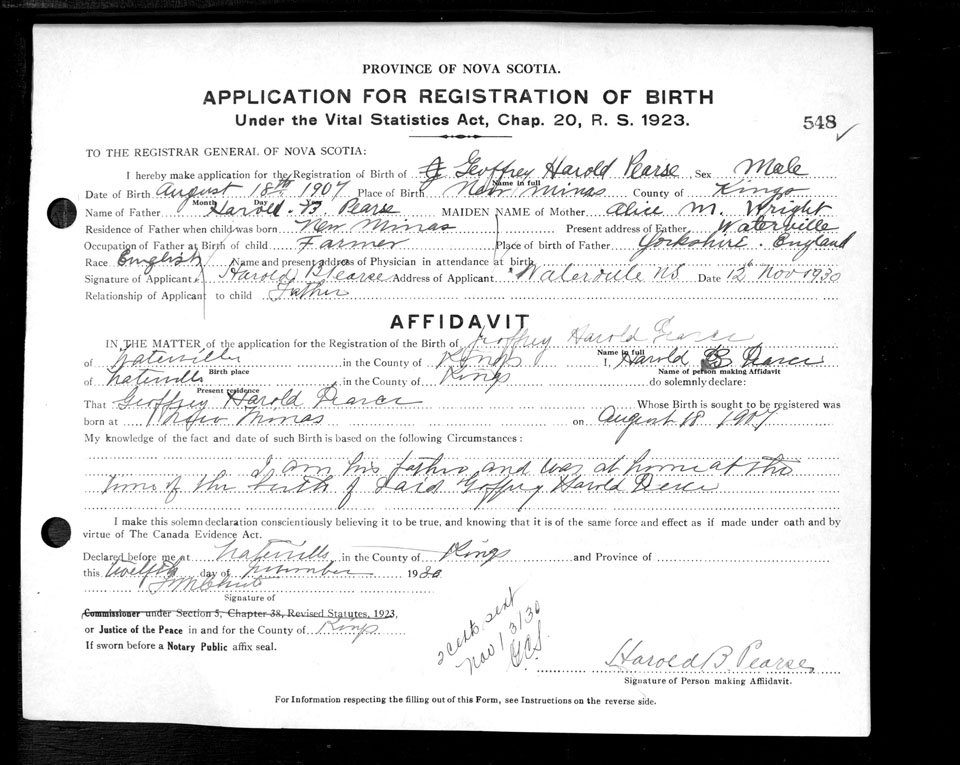 PROVINCE OF NOVA SCOTIA.
APPLICATION FOR REGISTRATION OF BIRTH
Under the Vital Statistics Act, Chap. 20, R. S. 1923.
548
TO THE REGISTRAR GENERAL OF NOVA SCOTIA:
I hereby make application for the Registration of Birth of Geoffrey Harold Pearse Sex Male
Name in full
Date of Birth August 18th 1907 Place of Birth New Minas County of Kings
Month Day Year
Name of Father Harold B. Pearse MAIDEN NAME of Mother Alice M. Wright
Residence of Father when child was born New Minas Present address of Father Waterville
Occupation of Father at Birth of child Farmer Place of birth of Father Yorkshire. England
Race English Name and present address of Physician in attendance at birth
Signature of Applicant Harold B Pearse Address of Applicant Waterville NS Date 12th Nov 1930
Relationship of Applicant to child Father
AFFIDAVIT
IN THE MATTER of the application for the Registration of the Birth of Geoffrey Harold Pearce
Name in full
of Waterville in the County of Kings I, Harold B Pearce
Birth place Name of person making Affidavit
of Waterville in the County of Kings do solemnly declare:
Present residence
That Geoffrey Harold Pearce Whose Birth is sought to be registered was
born at New Minas on August 18 1907
My knowledge of the fact and date of such Birth is based on the following Circumstances:
I am his father and was at home at the
time of the birth of said Goffrey Harold Pearce
I make this solemn declaration conscientiously believing it to be true, and knowing that it is of the same force and effect as if made under oath and by
virtue of The Canada Evidence Act.
Declared before me at Waterville in the County of Kings and Province of
this twelfth day of November 1930
Signature of
Commissioner under Section 5, Chapter 38, Revised Statutes, 1923,
or Justice of the Peace in and for the County of Kings
If sworn before a Notary Public affix seal.
2 certs. sent
Nov 13/30
G.C.S.
Harold B. Pearse
Signature of Person making Affidavit.
For Information respecting the filling out of this Form, see Instructions on the reverse side.